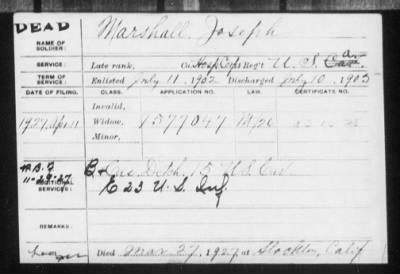 DEAD
NAME OF SOLDIER: Marshall, Joseph
SERVICE: Late rank, Co. Hosp Corps Reg't U. S. ar
TERM OF SERVICE: Enlisted July 11, 1902 Discharged July 10, 1905
DATE OF FILING. CLASS. APPLICATION NO. LAW. CERTIFICATE NO.
Invalid,
1927 Apr 11 Widow, 1577047
Minor,
11-29-27 B + Cas. Detch. 15 U.S. Cav
ADDITIONAL SERVICES: E 23 U. S. Inf
REMARKS:
Died Mar 27, 1927 at Stockton, Calif